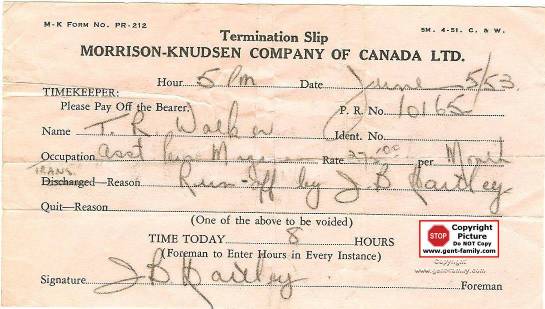 M-K FORM NO. PR-212
5M. 4-51. C. & W.
Termination Slip
MORRISON-KNUDSEN COMPANY OF CANADA LTD.
Hour 5 Pm Date June 5/53
TIMEKEEPER:
Please Pay Off the Bearer. P. R. No. 10165
Name T. R. Walker Ident. No.
Occupation Asst Rate per Month
TRANS.
Discharged—Reason Run-off by J B Hartley
Quit—Reason
(One of the above to be voided)
TIME TODAY 8 HOURS
(Foreman to Enter Hours in Every Instance)
Signature J B Hartley Foreman
STOP
Copyright
Picture
Do NOT Copy
www.gent-family.com
Copyright
www.gent-family.com